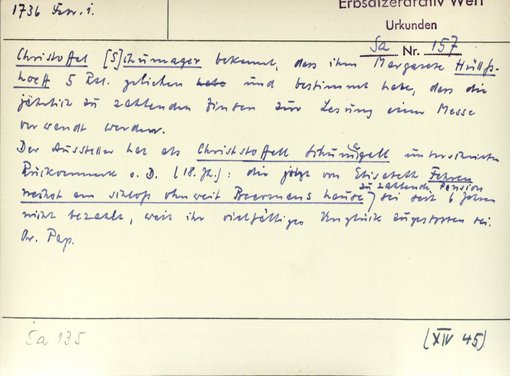 1736 Febr. 1.
Erbsälzerarchiv Werl
Urkunden
Sa Nr. 157
Christoffel [S]chumager bekennt, dass ihm Margarete Hüllss-
hoff 5 Rt. geliehen habe und bestimmt habe, dass die
jährlich zu zahlenden Zinsen zur Lesung einer Messe
verwandt werden.
Der Aussteller hat als Christstoffell Schumigell unterschrieben
Rückvermerk o. D. (18. Jh.): die jetzt von Elisabeth Fehren
zu zahlende Pension
nechst am schloss ohnweit Beermens hause sei seit 6 Jahren
nicht bezahlt, weil ihr vielfältiges Unglück zugestossen sei.
Or. Pap.
Sa 135
(XIV 45)